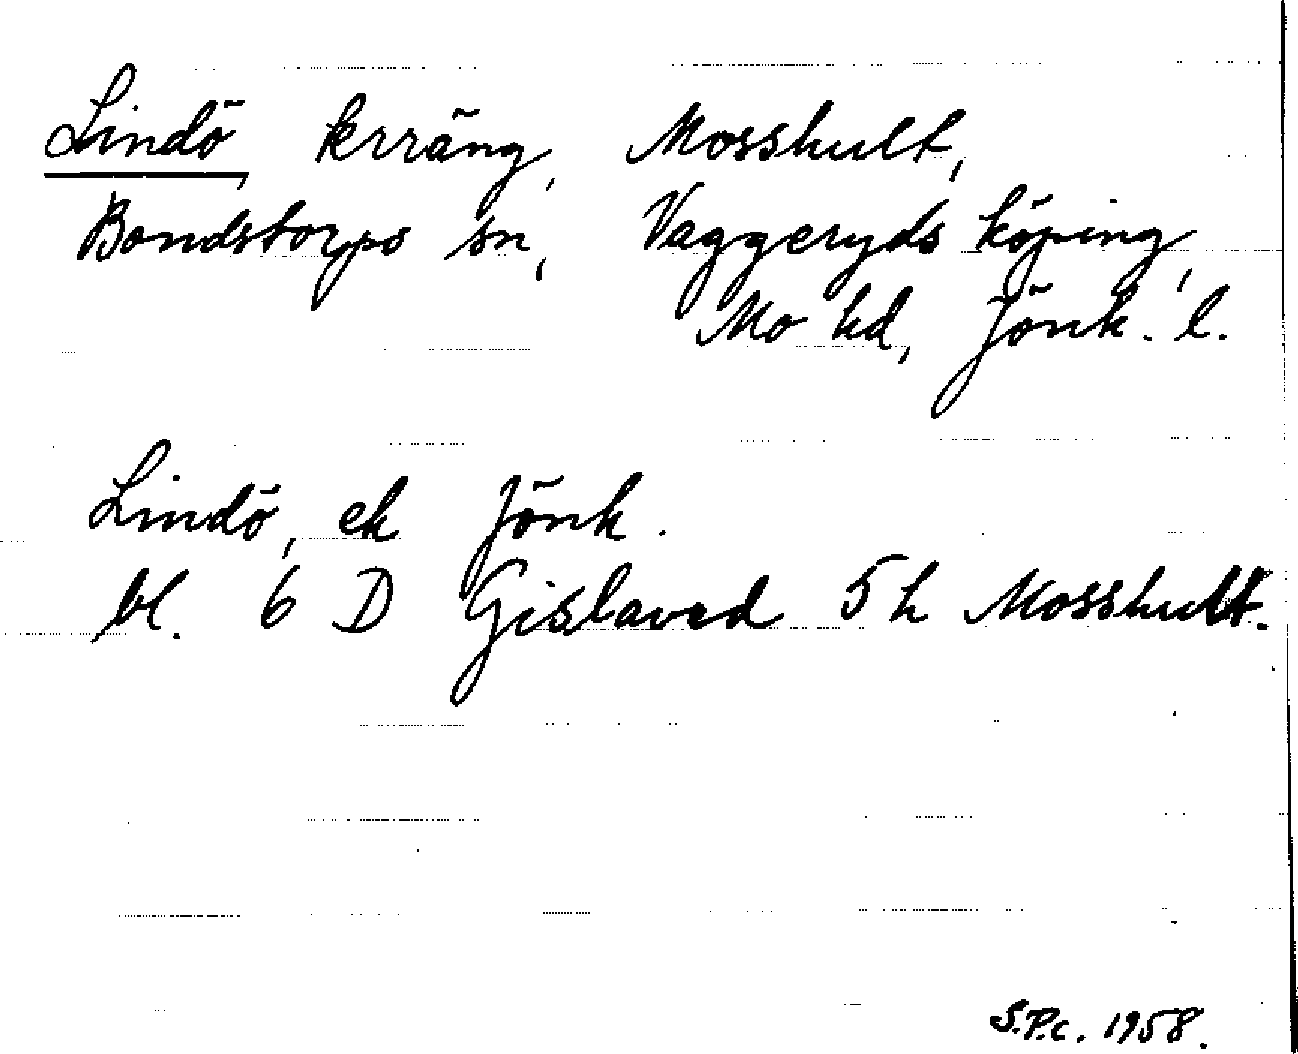 Lindö, krräng, Mosshult,
Bondstorps sn, Vaggeryds köping,
Mo hd, Jönk. l.
Lindö, ek Jönk.
bl. 6 D Gislaved 5 h Mosshult.
S.P.C. 1958.